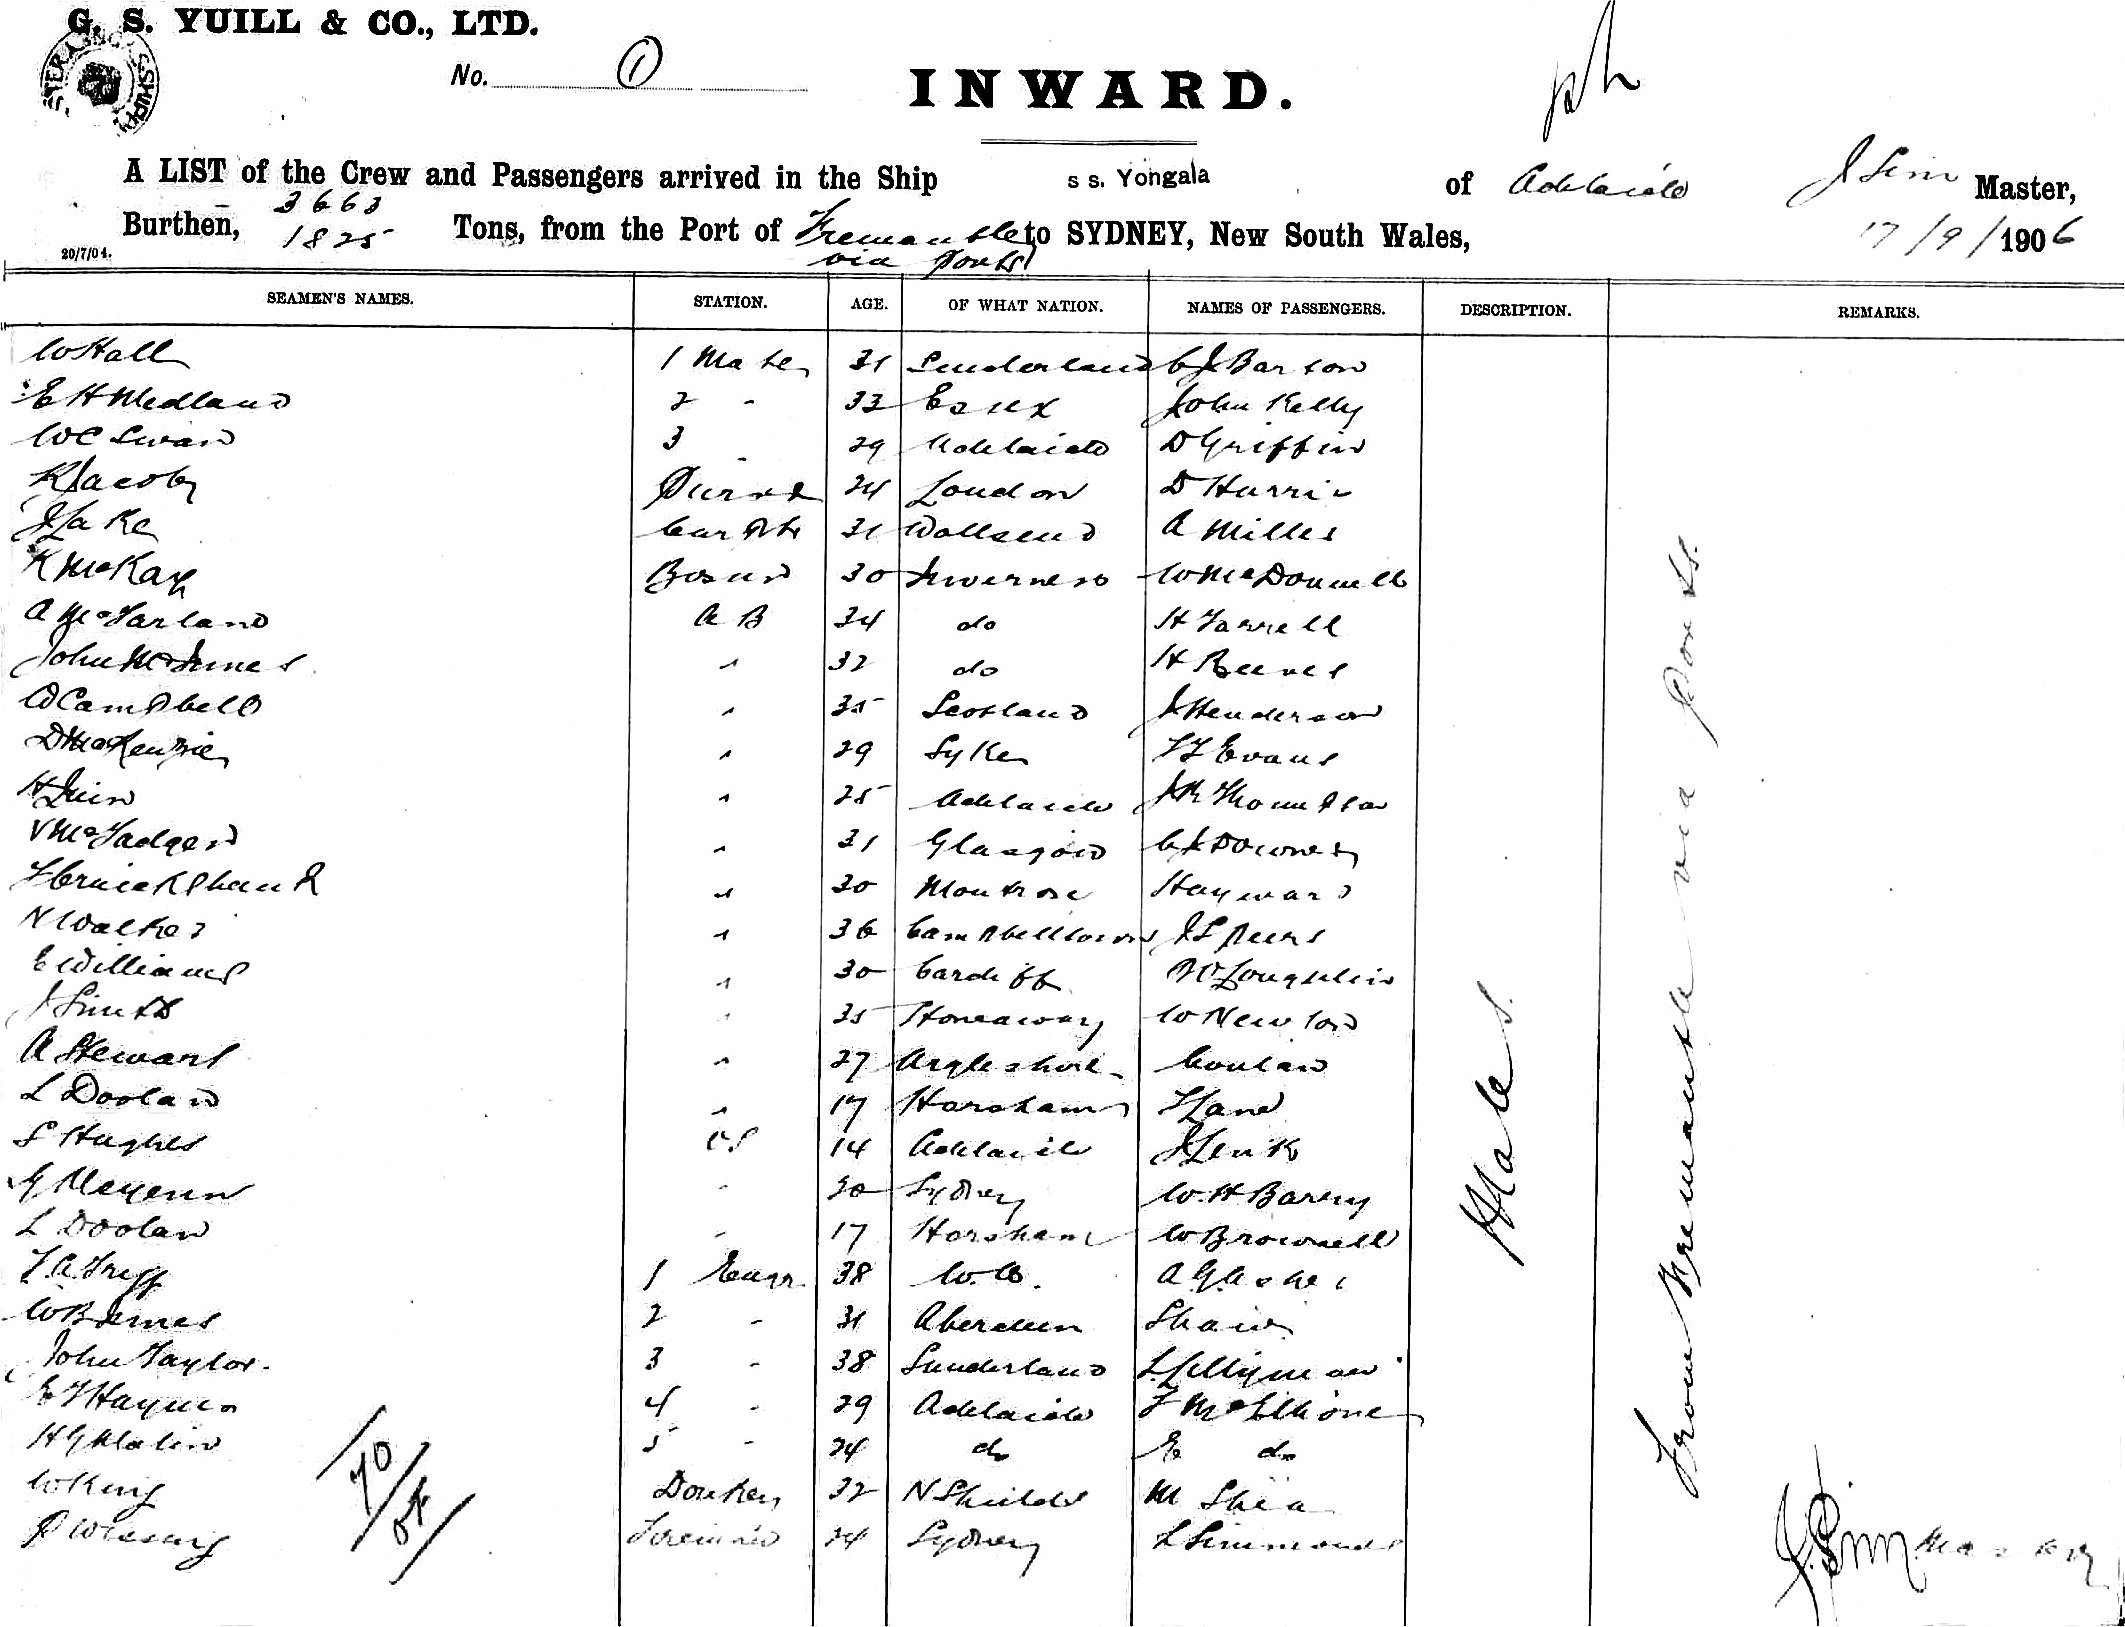 G. S. YUILL & CO., LTD.
No. 1
INWARD.
A LIST of the Crew and Passengers arrived in the Ship s s. Yongala of Adelaide J Sim Master,
Burthen, 3663 1825 Tons, from the Port of Fremantle via Ports to SYDNEY, New South Wales, 17/9/1906
20/7/04.
SEAMEN'S NAMES. STATION. AGE. OF WHAT NATION. NAMES OF PASSENGERS. DESCRIPTION. REMARKS.
W Hall 1 Mate 31 Sunderland C J Barton
E H Medland 2 " 33 Essex John Kelly
W C Swan 3 " 29 Adelaide D Griffin
R Jacoby Purser 24 London D Harris
J Lake Carptr 31 Wallsend A Miller
K McKay Bosun 30 Inverness W McDonnell
A McFarland A B 34 do H Farrell
John McInnes " 32 do H Reeves
D Campbell " 35 Scotland J Henderson
D McKenzie " 29 Syke F F Evans
H " 25 Adelaide J R Thompson
V McFadgen " 31 Glasgow C J Downey
F Cruickshank " 30 Montrose Hayward
N Walker " 36 Campbelltown J Speers
E Williams " 30 Cardiff McLoughlin
J Smith " 35 Stoneaway W Newton
A Stewart " 27 Argleshire Conlan
L Doolan " 17 Horsham F Lane
S Hughes OS 14 Adelaide J Lenk
G " 30 Sydney W. H Barry
L Doolan " 17 Horsham W Brownell
F A Grigg 1 Engr 38 W. A. A G
W B Innes 2 " 31 Aberdeen Shaw
John Taylor. 3 " 38 Sunderland L
E F Haynes 4 " 29 Adelaide F McElhone
H G Malin 5 " 24 do E do
W King Donkey 32 N Shields M Shea
P Fireman 24 Sydney L Simmonds
Males.
From Fremantle via Ports.
J. Sim Master